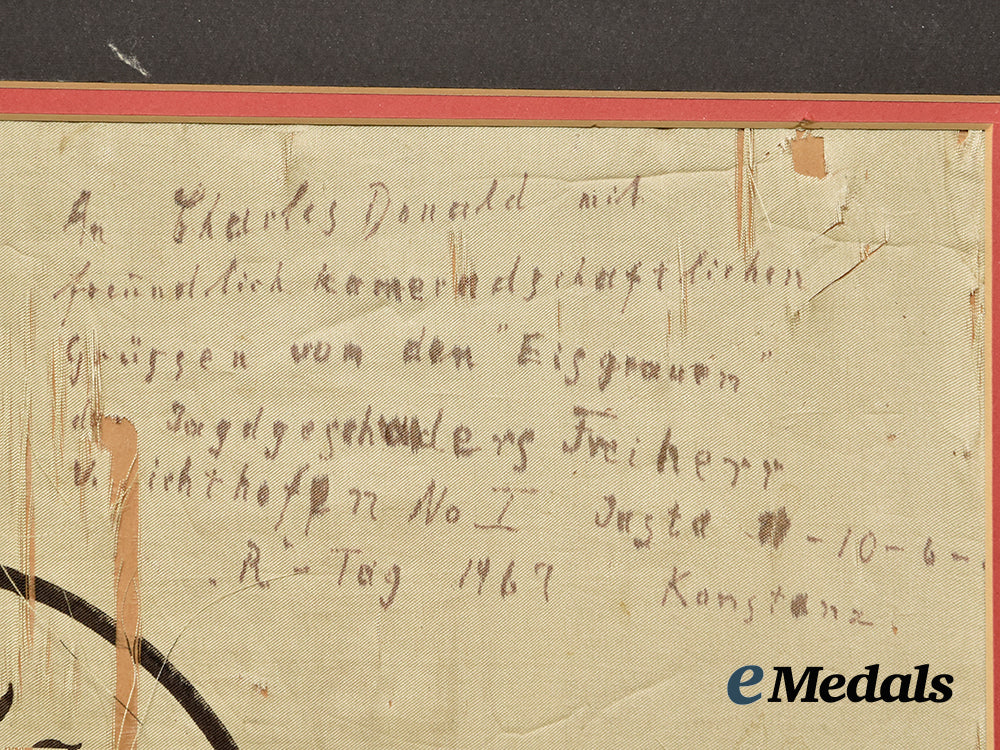 An Charles Donald mit
freundlich kameradschaftlichen
Grüssen von den "Eisgrauen"
Jagdgeschwaders Freiherr
v. Richthofen No I Jasta 11-10-6-.
R-Tag 1967 Konstanz.
eMedals